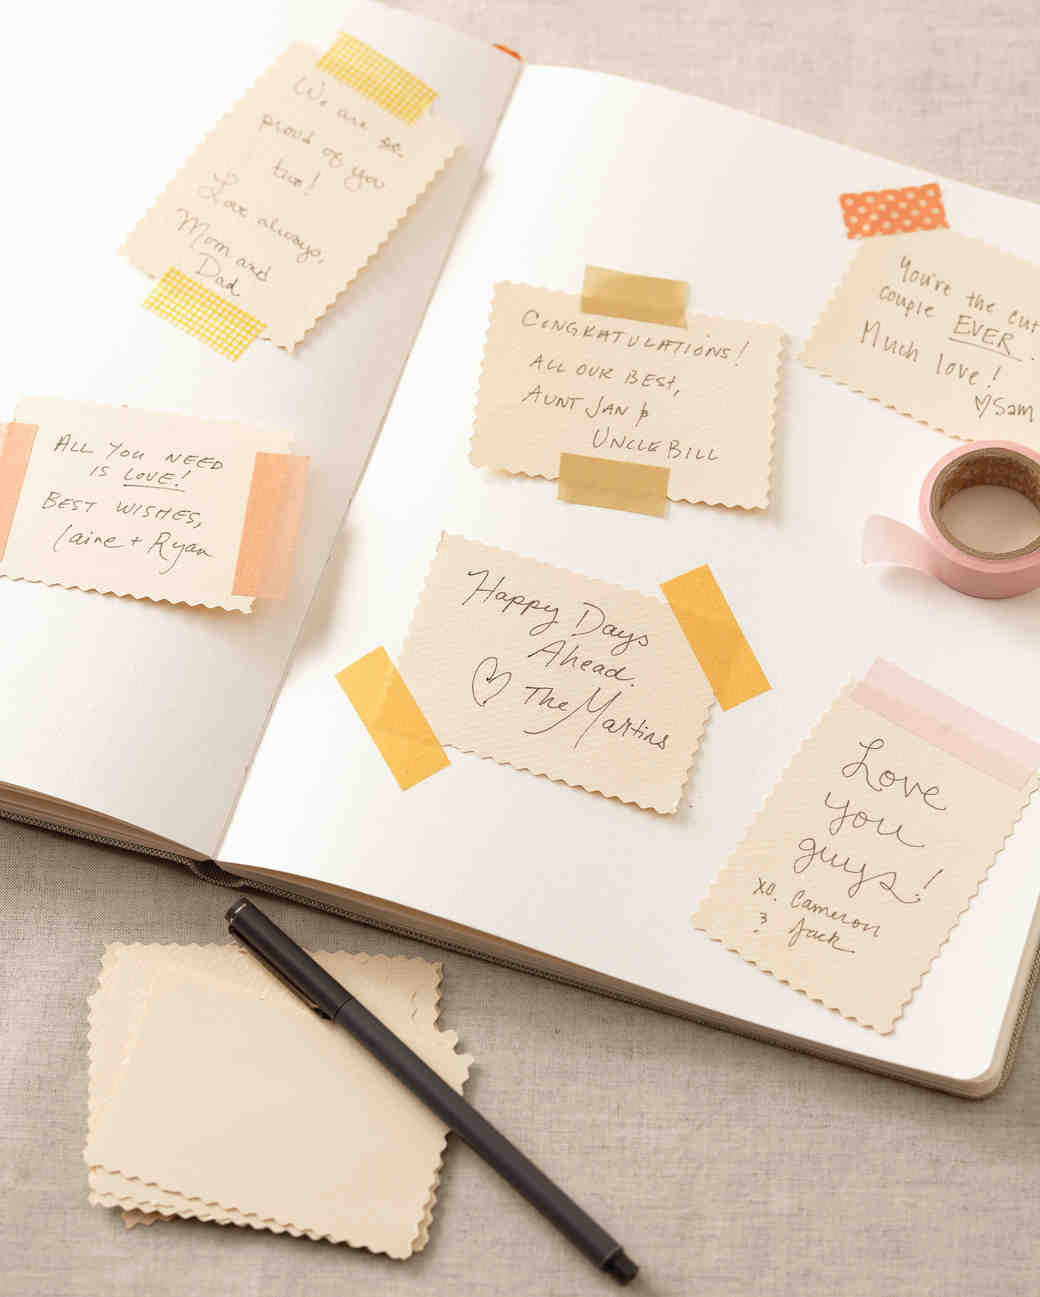 We are so
proud of you
two!
Love always,
Mom and
Dad
ALL YOU NEED
IS LOVE!
BEST WISHES,
Laine + Ryan
CONGRATULATIONS!
ALL OUR BEST,
AUNT JAN &
UNCLE BILL
You're the cut
couple EVER.
Much love!
♡Sam
Happy Days
Ahead.
♡ The Martins
Love
you
guys!
xo. Cameron
& Jack